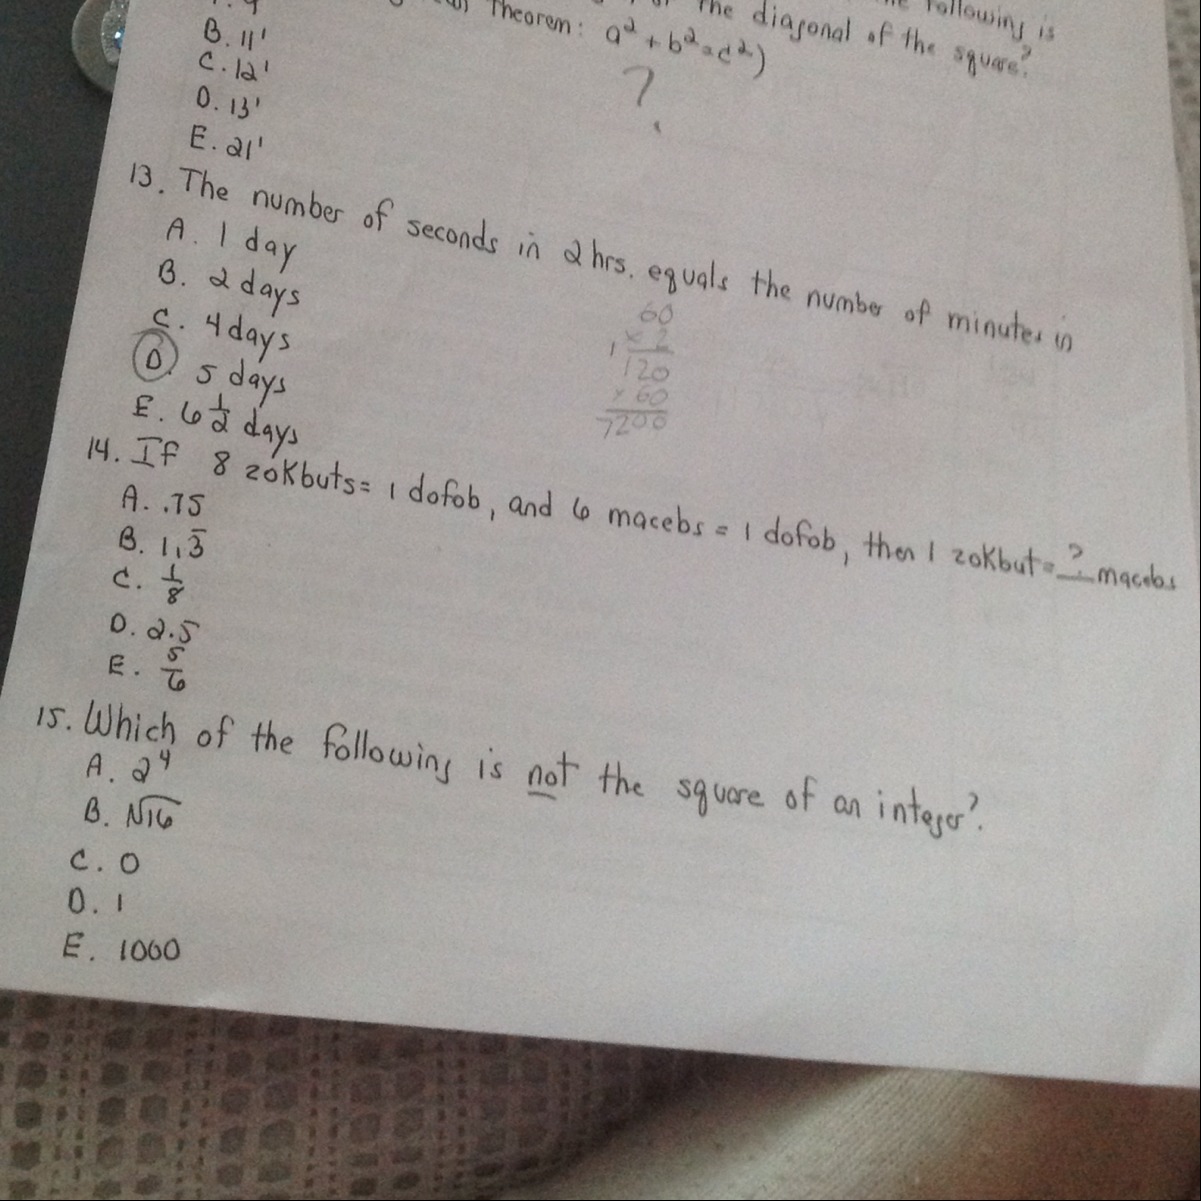 following is
the diagonal of the square?
Theorem: a² + b² = c²)
?
B. 11'
C. 12'
D. 13'
E. 21'
13. The number of seconds in 2 hrs. equals the number of minutes in
A. 1 day
B. 2 days
C. 4 days
D. 5 days
E. 6 1/2 days
60
× 2
1
120
× 60
7200
14. If 8 zokbuts = 1 dofob, and 6 macebs = 1 dofob, then 1 zokbut = ? macebs
A. .75
B. 1.3̅
C. 1/8
D. 2.5
E. 5/6
15. Which of the following is not the square of an integer?
A. 2⁴
B. √16
C. 0
D. 1
E. 1000